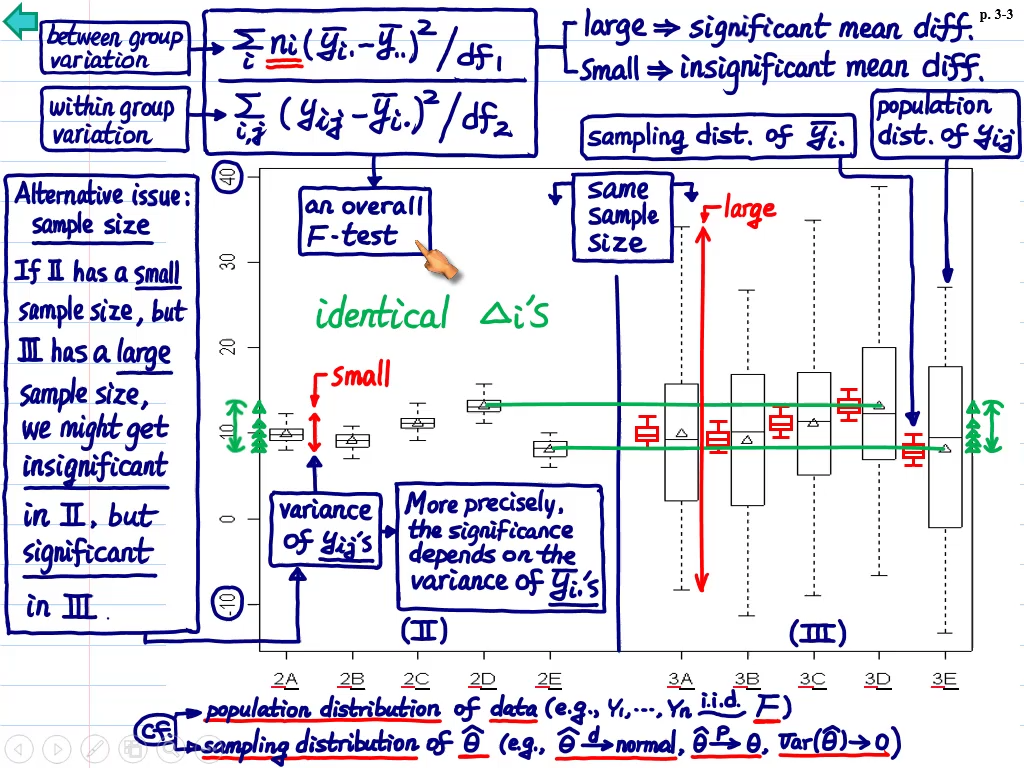 p. 3-3
between group
variation
Σi ni(ȳi. − ȳ..)² / df1
large ⇒ significant mean diff.
small ⇒ insignificant mean diff.
within group
variation
Σi,j (yij − ȳi.)² / df2
sampling dist. of ȳi.
population
dist. of yij
an overall
F-test
same
sample
size
large
Alternative issue:
sample size
If II has a small
sample size, but
III has a large
sample size,
we might get
insignificant
in II, but
significant
in III.
identical Δi's
small
variance
of yij's
More precisely,
the significance
depends on the
variance of ȳi.'s
40
30
20
10
0
-10
(II)
(III)
2A 2B 2C 2D 2E 3A 3B 3C 3D 3E
cf.
population distribution of data (e.g., Y1, ..., Yn i.i.d. F)
sampling distribution of θ̂ (e.g., θ̂ →d normal, θ̂ →P θ, Var(θ̂) → 0)